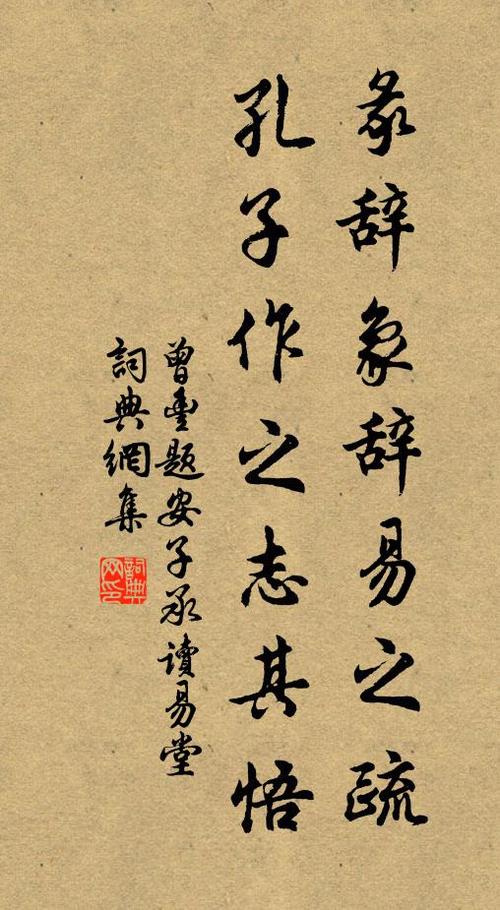 彖辞象辞易之疏
孔子作之志其悟
曾豊题安子承讀易堂
詞典網集
詞典网印